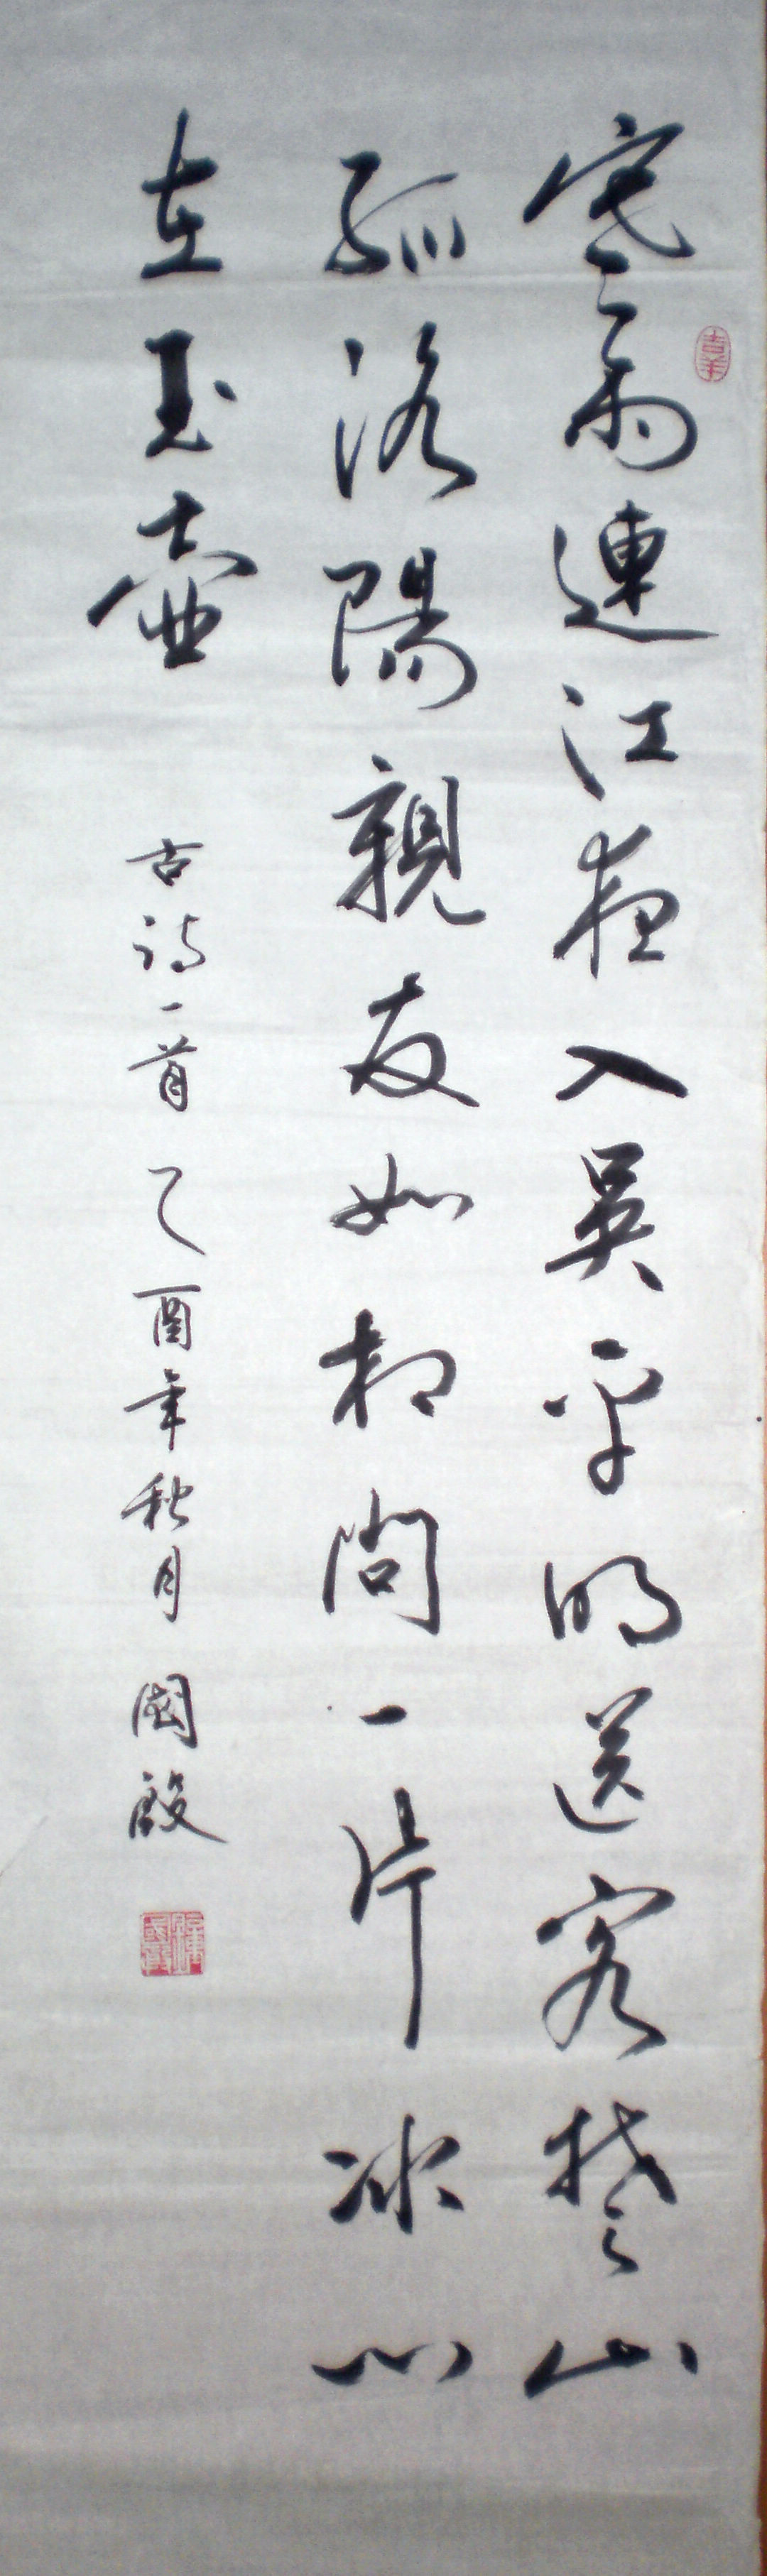 寒雨連江夜入吳平明送客楚山
孤洛陽親友如相問一片冰心
在玉壺
古詩一首 乙酉年秋月 國殿